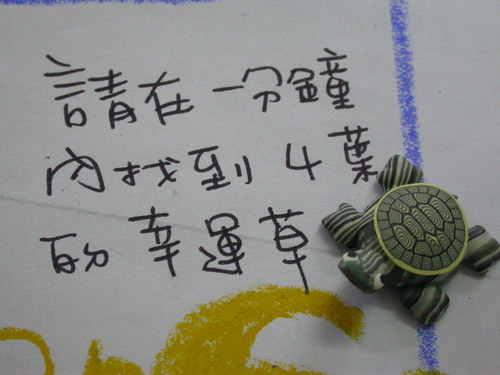 請在一分鐘
內找到4葉
的幸運草